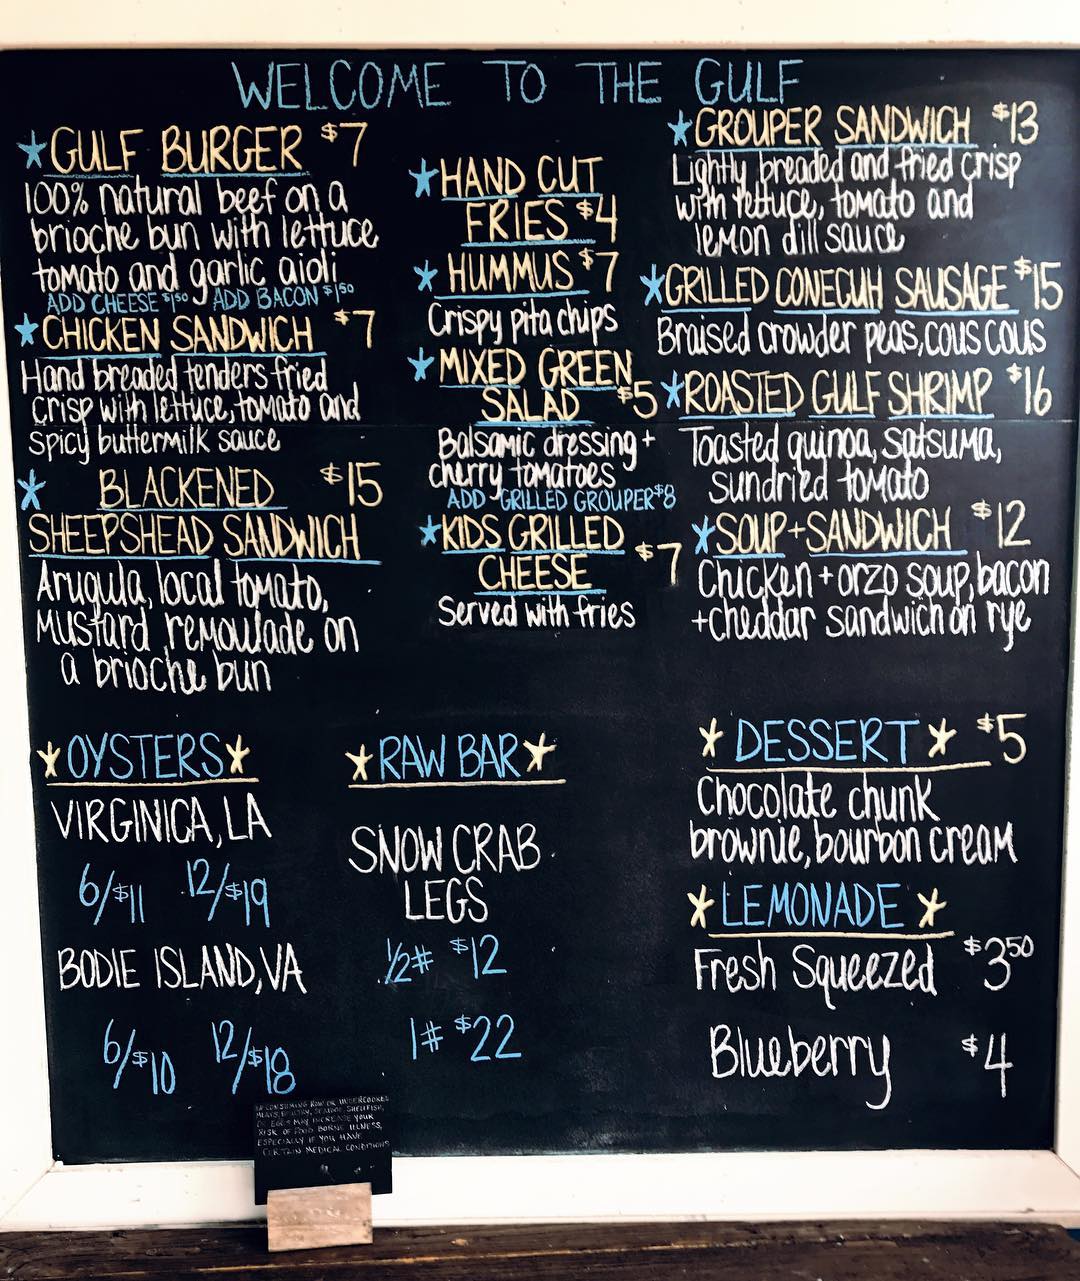 WELCOME TO THE GULF
★GULF BURGER $7
100% natural beef on a
brioche bun with lettuce
tomato and garlic aioli
ADD CHEESE $1.50 ADD BACON $1.50
★CHICKEN SANDWICH $7
Hand breaded tenders fried
crisp with lettuce, tomato and
spicy buttermilk sauce
★ BLACKENED $15
SHEEPSHEAD SANDWICH
Arugula, local tomato,
Mustard remoulade on
a brioche bun
★HAND CUT
FRIES $4
★HUMMUS $7
Crispy pita chips
★MIXED GREEN
SALAD $5
Balsamic dressing +
cherry tomatoes
ADD GRILLED GROUPER $8
★KIDS GRILLED
CHEESE $7
Served with fries
★GROUPER SANDWICH $13
Lightly breaded and fried crisp
with lettuce, tomato and
lemon dill sauce
★GRILLED CONECUH SAUSAGE $15
Braised crowder peas, cous cous
★ROASTED GULF SHRIMP $16
Toasted quinoa, satsuma,
sundried tomato
★SOUP + SANDWICH $12
Chicken + orzo soup, bacon
+ cheddar sandwich on rye
★OYSTERS★
VIRGINICA, LA
6/$11 12/$19
BODIE ISLAND, VA
6/$10 12/$18
★RAW BAR★
SNOW CRAB
LEGS
1/2# $12
1# $22
★ DESSERT ★ $5
Chocolate chunk
brownie, bourbon cream
★LEMONADE ★
Fresh Squeezed $3.50
Blueberry $4
CONSUMING RAW OR UNDERCOOKED
MEATS, POULTRY, SEAFOOD, SHELLFISH,
OR EGGS MAY INCREASE YOUR
RISK OF FOOD BORNE ILLNESS,
ESPECIALLY IF YOU HAVE
CERTAIN MEDICAL CONDITIONS